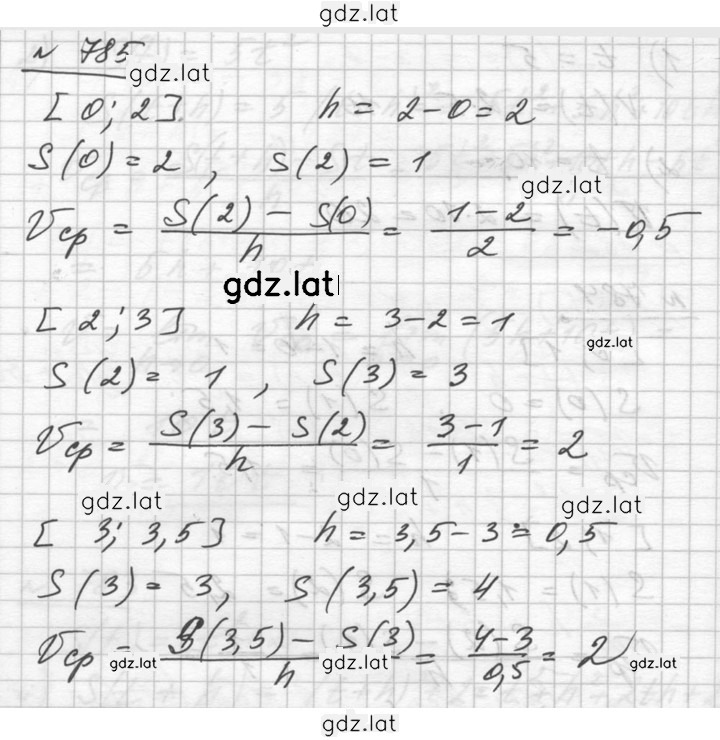 gdz.lat
№ 785
gdz.lat
[ 0; 2 ].   h = 2-0 = 2
S(0) = 2 , S(2) = 1
gdz.lat
Vср = (S(2) - S(0))/h = (1-2)/2 = -0,5
gdz.lat
[ 2; 3 ]   h = 3-2 = 1
gdz.lat
S(2) = 1 , S(3) = 3
Vср = (S(3) - S(2))/h = (3-1)/1 = 2
gdz.lat gdz.lat gdz.lat
[ 3; 3,5 ]   h = 3,5-3 = 0,5
S(3) = 3, S(3,5) = 4
Vср = (S(3,5) - S(3))/h = (4-3)/0,5 = 2
gdz.lat gdz.lat gdz.lat
gdz.lat